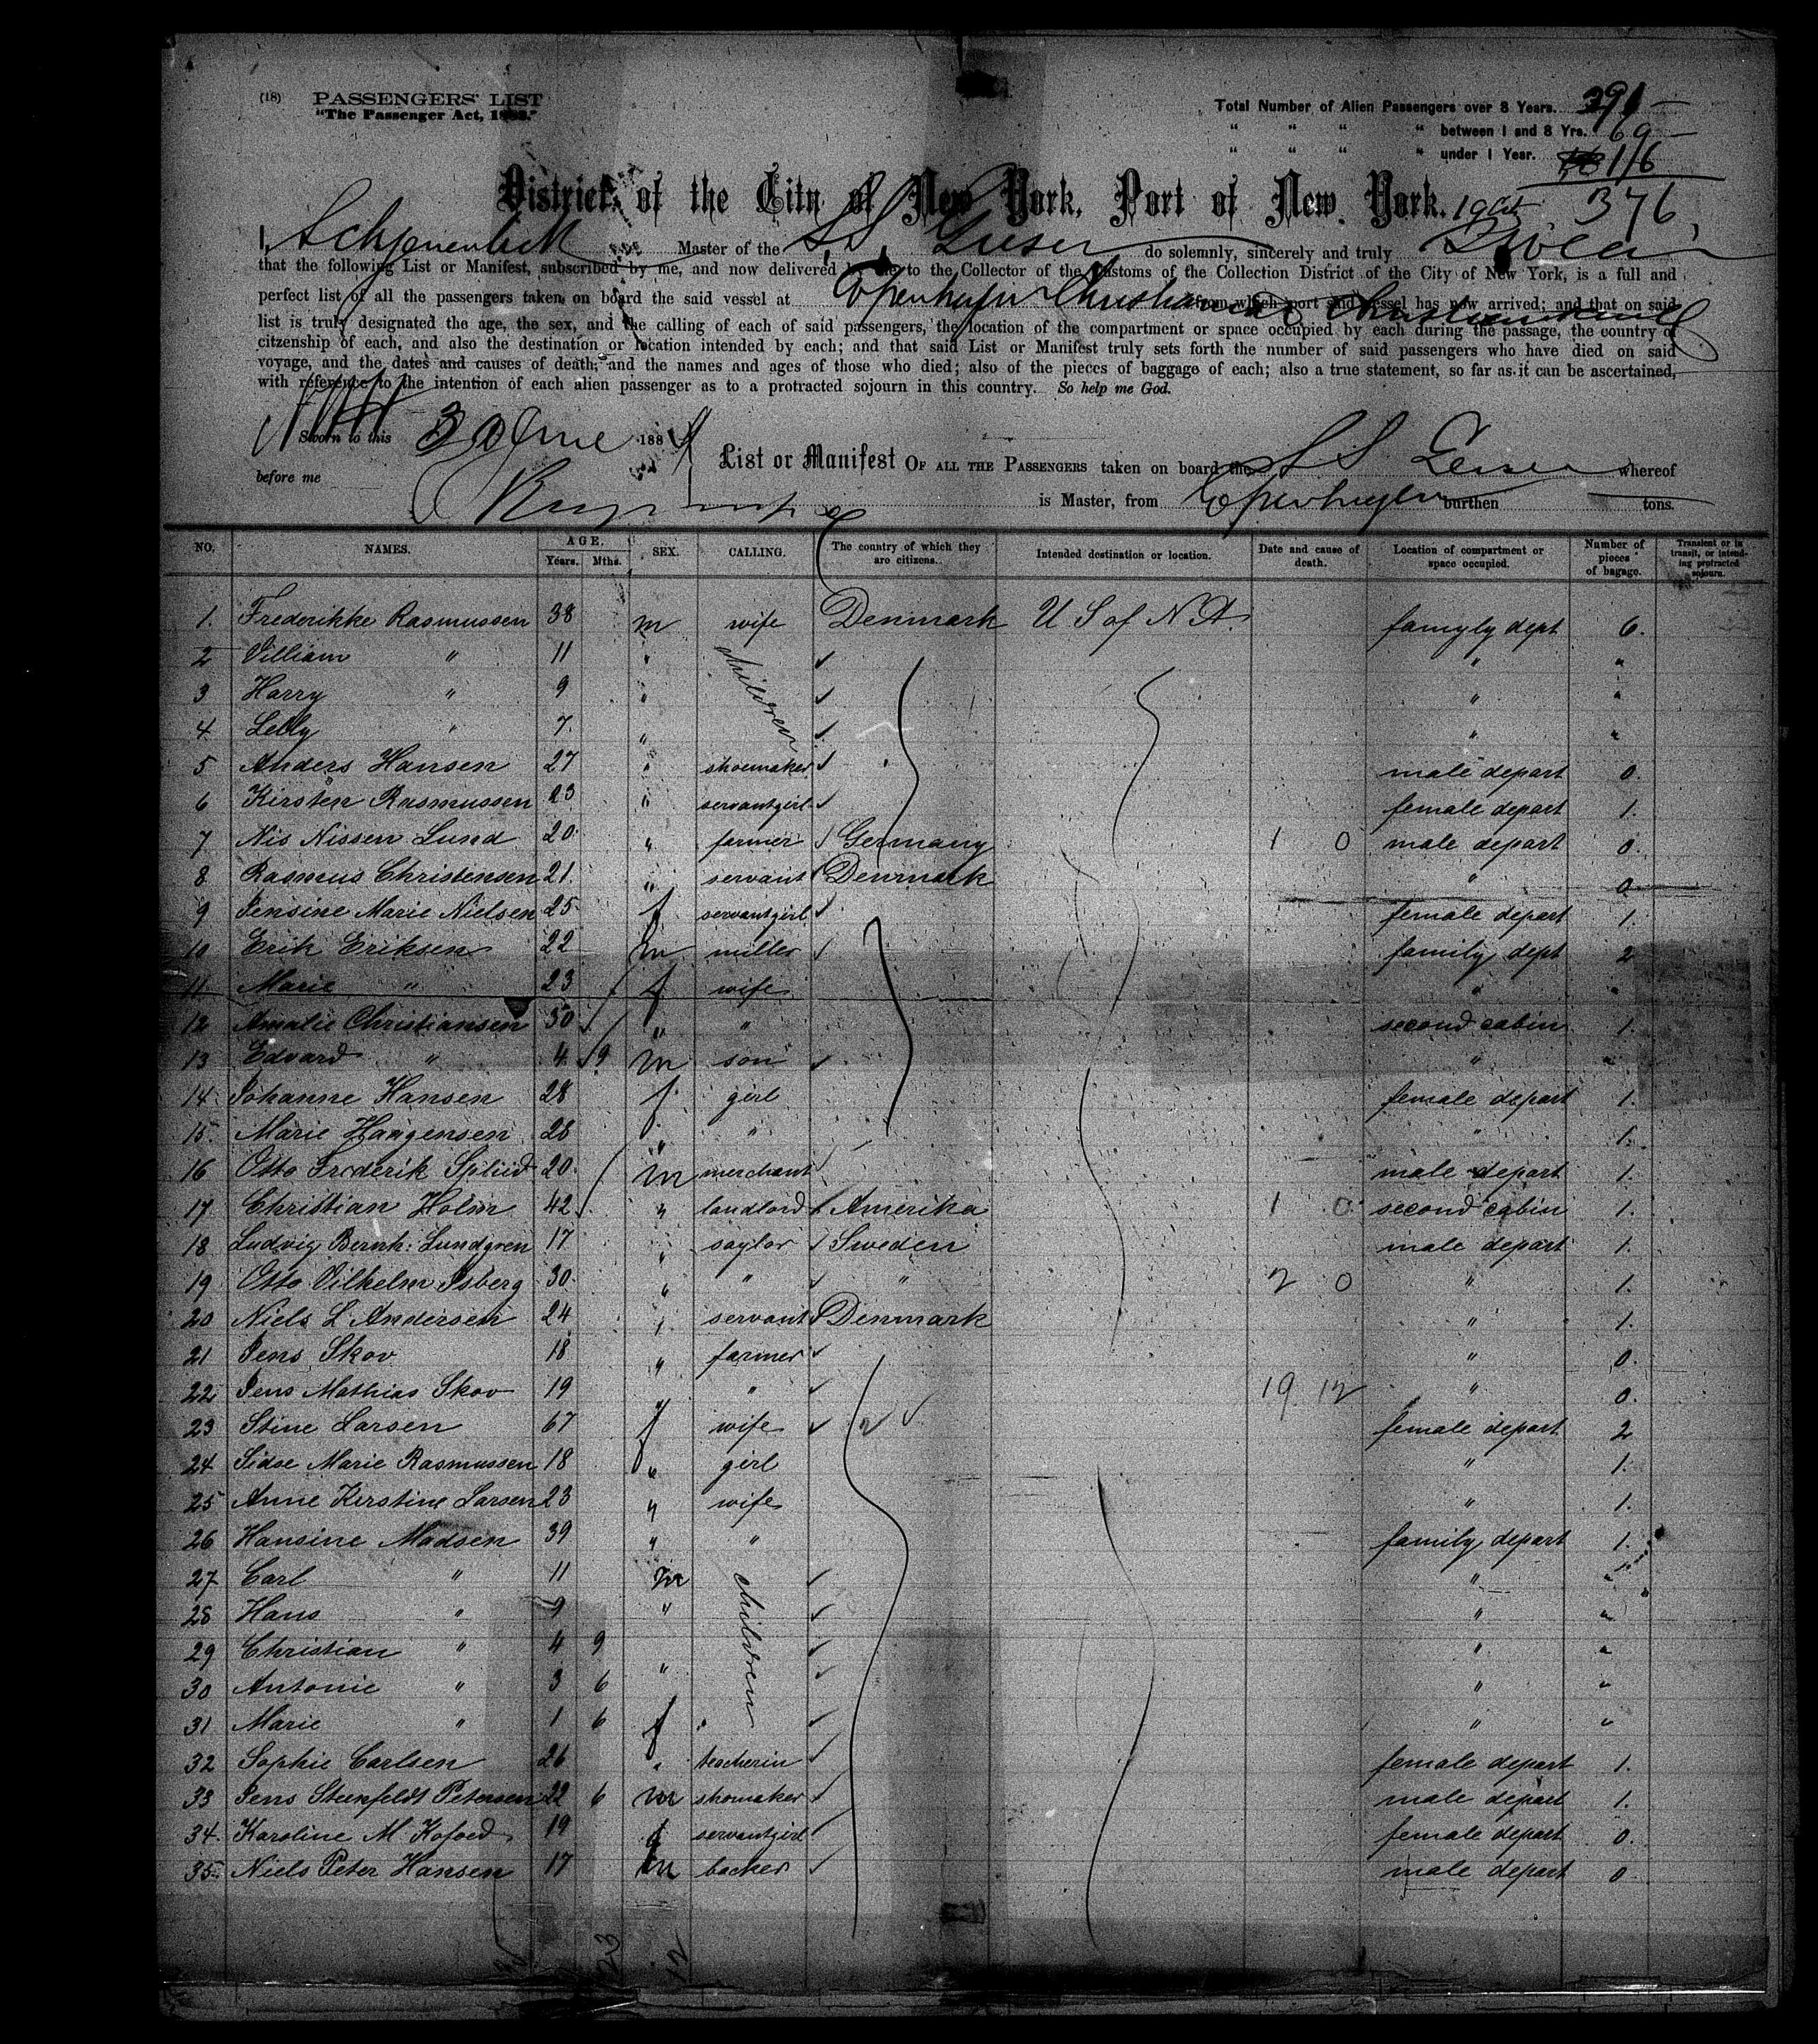 (18) PASSENGERS' LIST
"The Passenger Act, 1882."
Total Number of Alien Passengers over 8 Years. 291
" " " " between 1 and 8 Yrs. 69
" " " " under 1 Year. 16
376
District of the City of New York, Port of New York.
I, Master of the S.S. Geiser do solemnly, sincerely and truly Swear
that the following List or Manifest, subscribed by me, and now delivered by me to the Collector of the Customs of the Collection District of the City of New York, is a full and
perfect list of all the passengers taken on board the said vessel at Copenhagen Christiania & Christiansand from which port said vessel has now arrived; and that on said
list is truly designated the age, the sex, and the calling of each of said passengers, the location of the compartment or space occupied by each during the passage, the country of
citzenship of each, and also the destination or location intended by each; and that said List or Manifest truly sets forth the number of said passengers who have died on said
voyage, and the dates and causes of death, and the names and ages of those who died; also of the pieces of baggage of each; also a true statement, so far as it can be ascertained,
with reference to the intention of each alien passenger as to a protracted sojourn in this country. So help me God.
Sworn to this 30 June 188
before me
List or Manifest OF ALL THE PASSENGERS taken on board the SS Geiser whereof
is Master, from Copenhagen burthen tons.
NO. NAMES. AGE. Years. Mths. SEX. CALLING. The country of which they are citizens. Intended destination or location. Date and cause of death. Location of compartment or space occupied. Number of pieces of bagage. Transient or in transit, or intending protracted sojourn.
1. Frederikke Rasmussen 38 m wife Denmark U S of N A. famyly dept 6.
2 Villiam " 11 " children " "
3 Harry " 9 " " "
4. Lelly " 7. " " "
5 Anders Hansen 27 " shoemaker male depart 0.
6 Kirsten Rasmussen 23 " servantgirl female depart 1.
7 Nis Nissen Lund 20 " farmer Germany 1 0 male depart 0.
8 Rasmus Christensen 21. " servant Denmark " 0
9 Jensine Marie Nielsen 25 f servantgirl female depart 1.
10 Erik Eriksen 22 m miller family dept 2
11. Marie " 23 f wife " "
12 Amalie Christiansen 30 " " second cabin 1.
13 Edvard " 4 9 m son " "
14. Johanne Hansen 28 f girl female depart 1.
15. Marie Haagensen 28 " " " 1.
16 Otto Frederik Spliid 20 m merchant male depart 1.
17 Christian Holm 42 " landlord Amerika 1 0 second cabin 1.
18 Ludvig Bernh. Lundgren 17 " saylor Sweden male depart 1.
19 Otto Vilhelm Isberg 30 " " " 2 0 " 1.
20 Niels L Andersen 24 " servant Denmark " 1.
21 Jens Skov 18 " farmer " 0.
22 Jens Mathias Skov 19 " " 19 12 " 0.
23 Stine Larsen 67 f wife female depart 2
24 Sidse Marie Rasmussen 18 " girl " 1.
25 Anne Kirstine Larsen 23 " wife " 1.
26 Hansine Madsen 39 " " family depart 1.
27 Carl " 11 m children " "
28 Hans " 9 " " "
29 Christian " 4 9 " "
30 Antonie " 3 6 " " "
31 Marie " 1 6 f " " "
32 Sophie Carlsen 26 " teacherin female depart 1.
33 Jens Steenfeldt Petersen 22 6 m shomaker male depart 1.
34. Karoline M Kofoed 19 f servantgirl female depart 0.
35. Niels Peter Hansen 17 m backer male depart 0
23 12